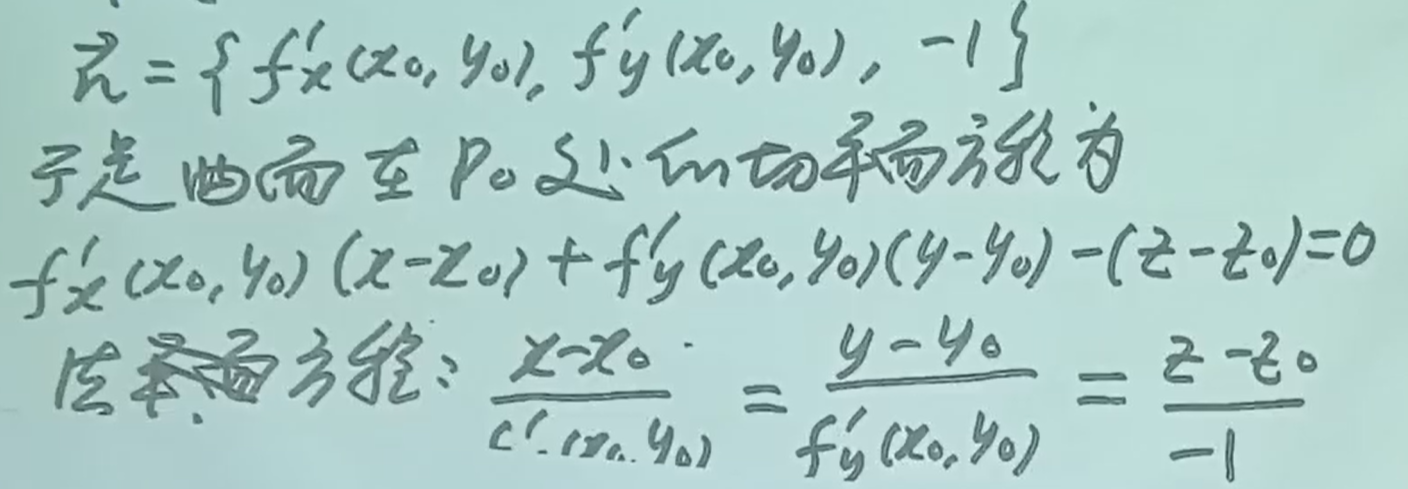 n⃗ = {f'x(x0, y0), f'y(x0, y0), -1}
于是曲面在P0处的切平面方程为
f'x(x0, y0)(x-x0) + f'y(x0, y0)(y-y0) - (z-z0)=0
法方程: (x-x0)/( '(x0, y0)) = (y-y0)/(f'y(x0, y0)) = (z-z0)/(-1)